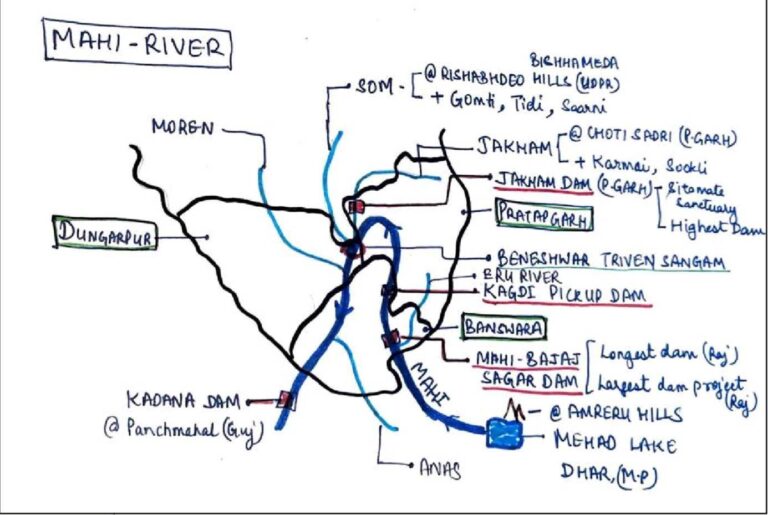 MAHI-RIVER
BICHHAMEDA
SOM - @ RISHABHDEO HILLS (UDPR)
+ Gomti, Tidi, Saarni
MOREN
JAKHAM @ CHOTI SADRI (P.GARH)
+ Karmai, Sookli
JAKHAM DAM (P.GARH) - Sitamate
Sanctuary
Highest Dam
PRATAPGARH
DUNGARPUR
BENESHWAR TRIVEN SANGAM
ERU RIVER
KAGDI PICKUP DAM
BANSWARA
MAHI-BAJAJ
SAGAR DAM
Longest dam (Raj)
Largest dam project
(Raj)
MAHI
KADANA DAM
@ Panchmahal (Guj)
@ AMRERU HILLS
MEHAD LAKE
DHAR, (M.P)
ANAS